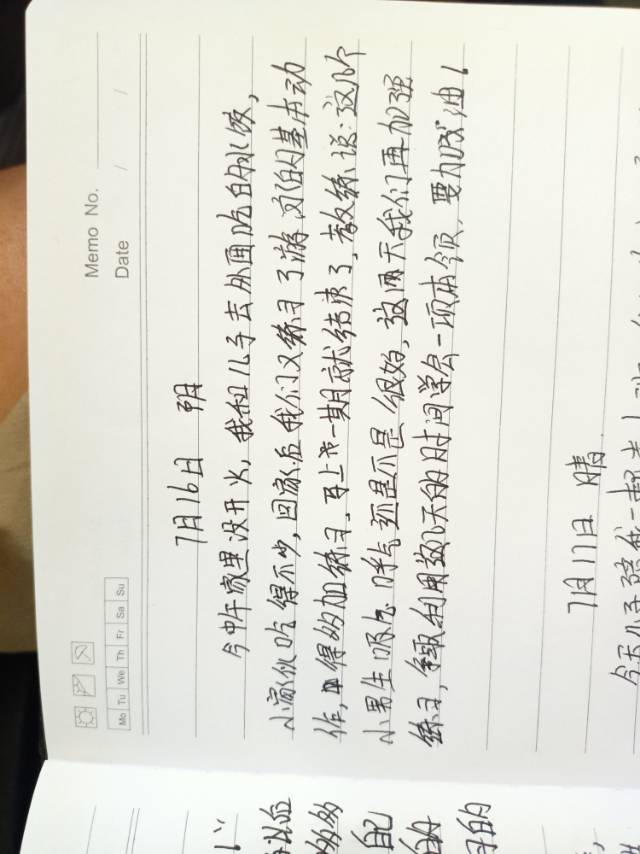 Memo No.
Date / /
Mo Tu We Th Fr Sa Su
7月16日 阴
今中午家里没开火，我和儿子去外面吃的水饺，
小家伙吃得不少，回家后我们又练习了游泳的基本动
作，得约加练习，再上一期就结束了，教练说：这几个
小男生吸气呼气还是不是很好，这两天我们再加强
练习，争取利用这几天的时间学会一项本领，要加油！
7月17日 晴